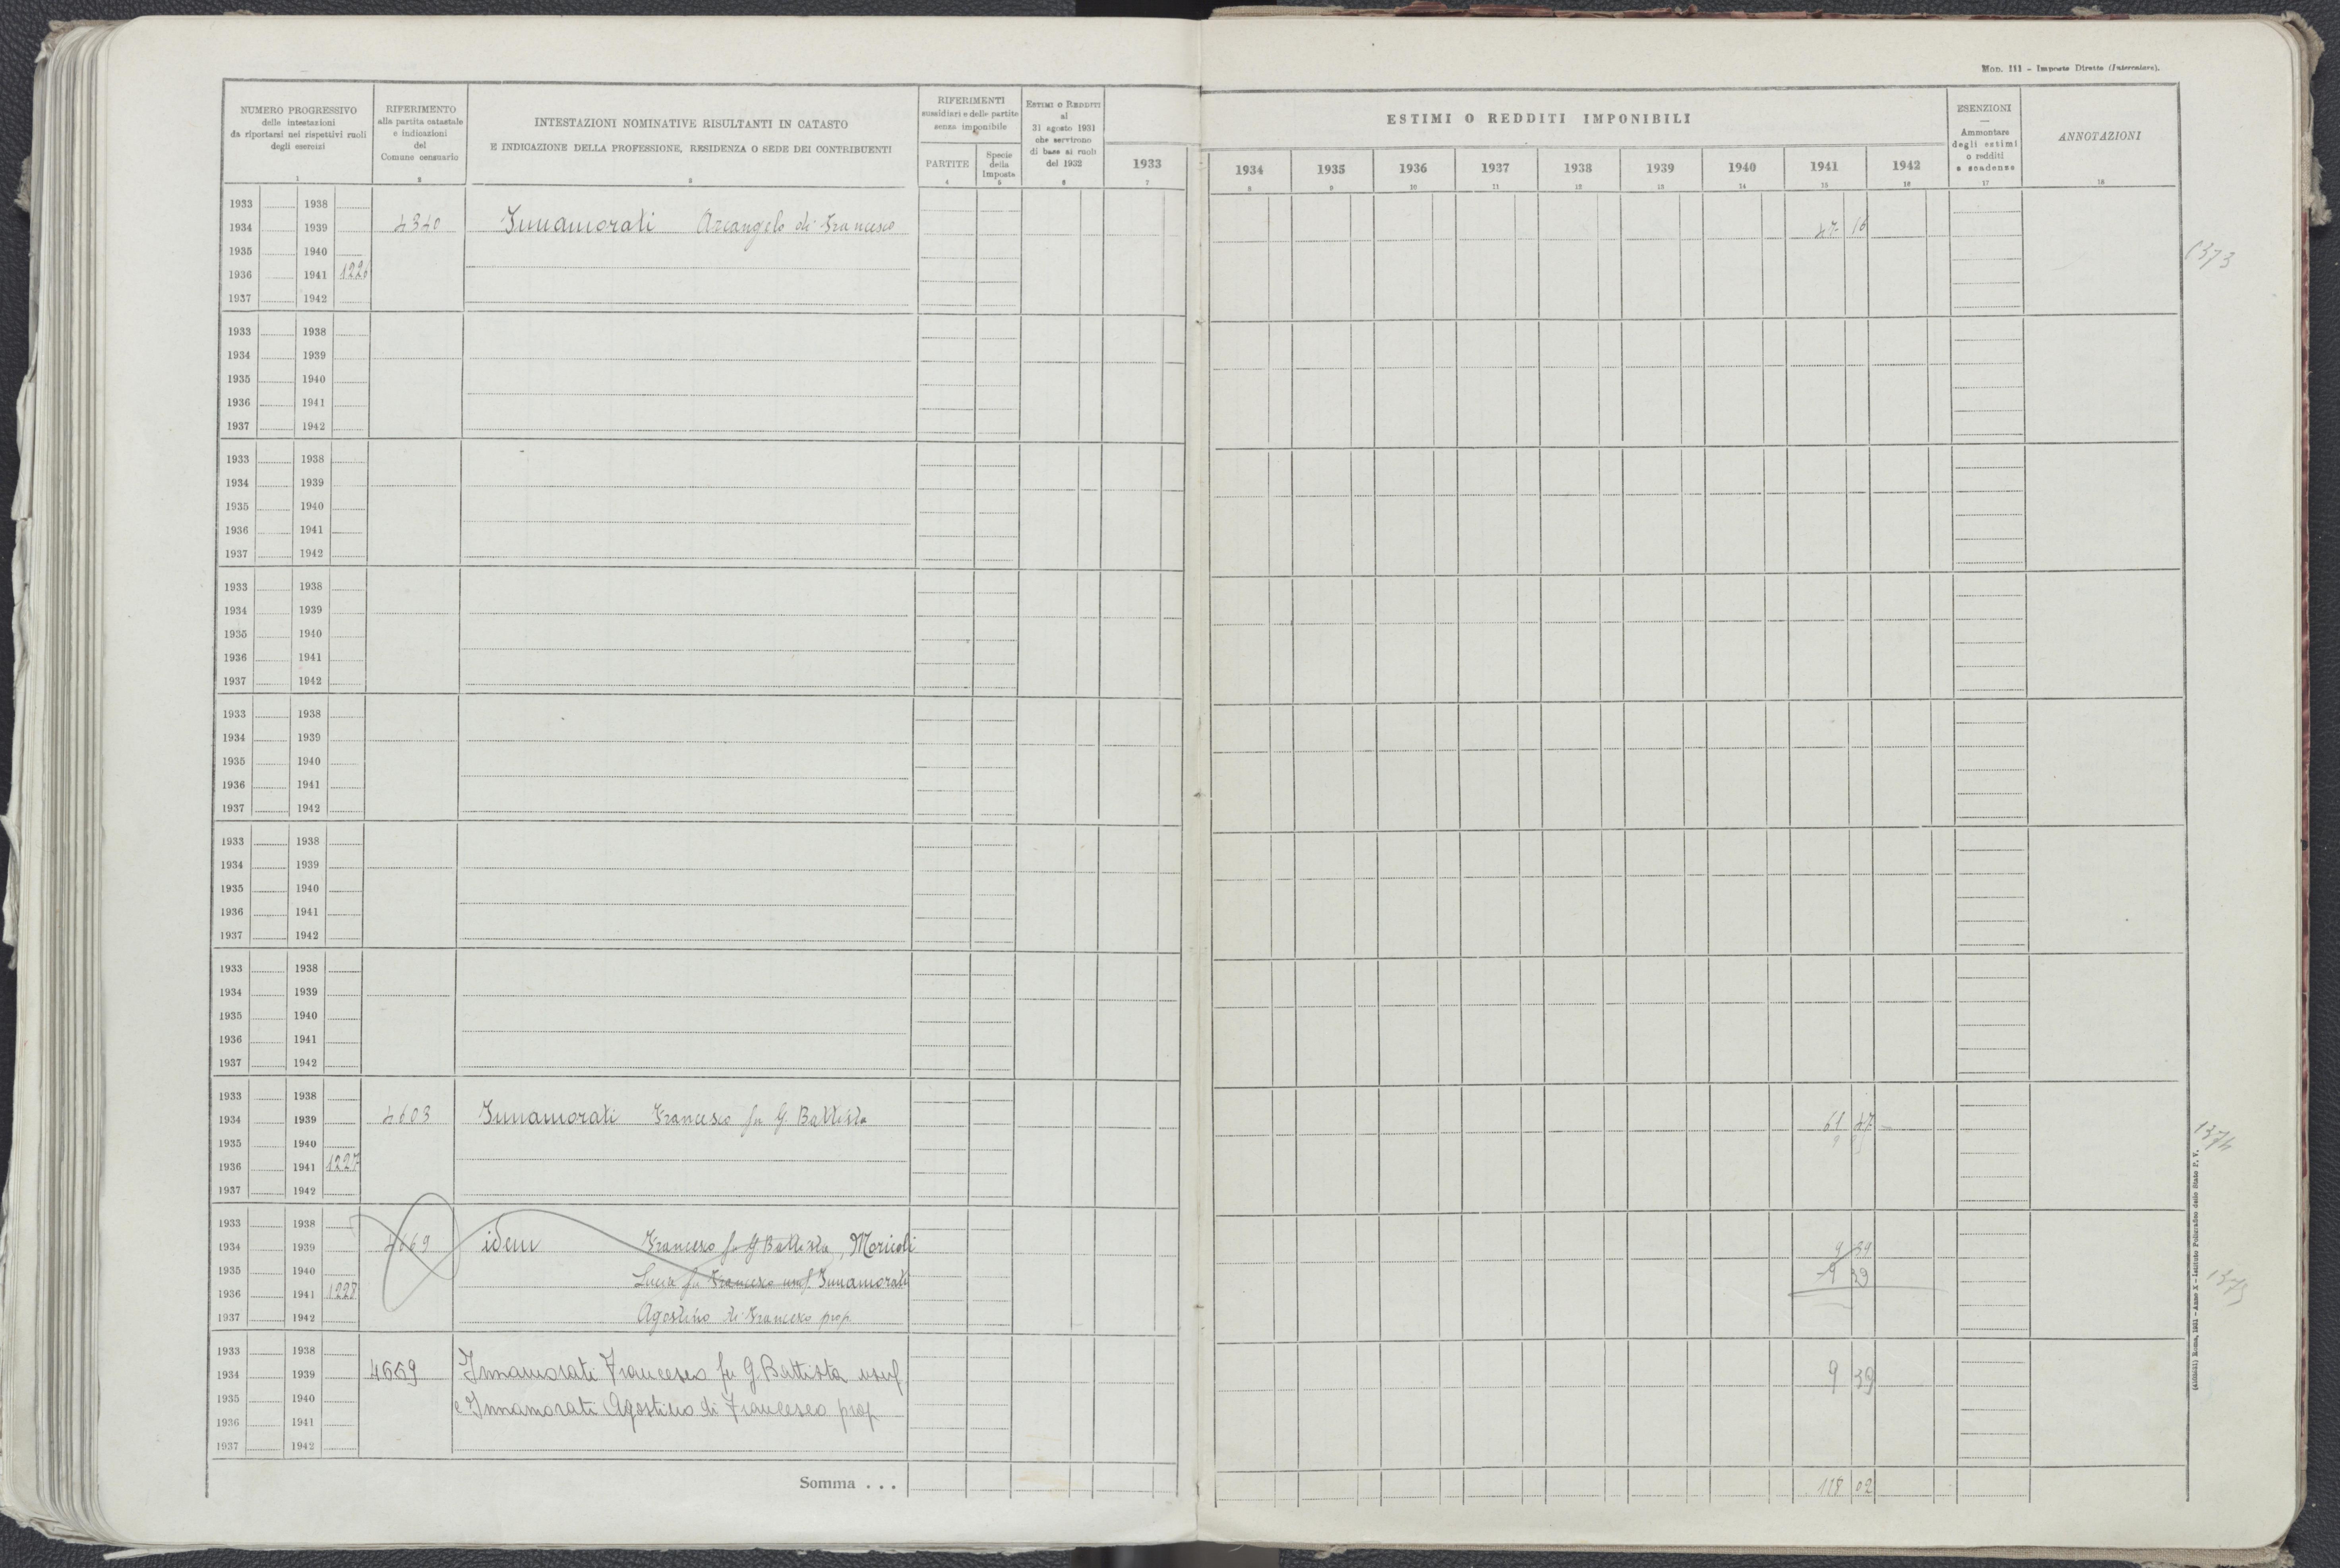 Mod. 111 - Imposte Dirette (Intercalare).
NUMERO PROGRESSIVO
delle intestazioni
da riportarsi nei rispettivi ruoli
degli esercizi
1
RIFERIMENTO
alla partita catastale
e indicazioni
del
Comune censuario
2
INTESTAZIONI NOMINATIVE RISULTANTI IN CATASTO
E INDICAZIONE DELLA PROFESSIONE, RESIDENZA O SEDE DEI CONTRIBUENTI
3
RIFERIMENTI
sussidiari e delle partite
senza imponibile
PARTITE
4
Specie
della
Imposta
5
ESTIMI O REDDITI
al
31 agosto 1931
che servirono
di base ai ruoli
del 1932
6
1933
7
ESTIMI O REDDITI IMPONIBILI
1934 1935 1936 1937 1938 1939 1940 1941 1942
8 9 10 11 12 13 14 15 16
ESENZIONI
—
Ammontare
degli estimi
o redditi
e scadenze
17
ANNOTAZIONI
18
1933 1938
1934 1939 4340 Innamorati Arcangelo di Francesco 47 16
1935 1940 1373
1936 1941 1226
1937 1942
1933 1938
1934 1939
1935 1940
1936 1941
1937 1942
1933 1938
1934 1939
1935 1940
1936 1941
1937 1942
1933 1938
1934 1939
1935 1940
1936 1941
1937 1942
1933 1938
1934 1939
1935 1940
1936 1941
1937 1942
1933 1938
1934 1939
1935 1940
1936 1941
1937 1942
1933 1938
1934 1939
1935 1940
1936 1941
1937 1942
1933 1938
1934 1939 4603 Innamorati Francesco fu G. Battista 61 47
1935 1940 1374
1936 1941 1227
1937 1942
1933 1938
1934 1939 4669 idem Francesco fu G Battista, Moricoli 9 39
1935 1940 Lucia fu Francesco usuf. Innamorati 9 39
1936 1941 1228 1375
1937 1942 Agostino di Francesco prop.
1933 1938
1934 1939 4669 Innamorati Francesco fu G. Battista usuf 9 39
1935 1940 e Innamorati Agostino di Francesco prop
1936 1941
1937 1942
Somma . . . 118 02
Roma, 1931 - Anno X - Istituto Poligrafico dello Stato P. V.